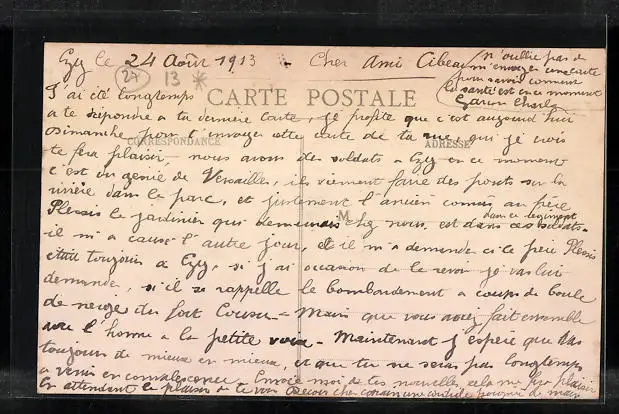 Ezy le 24 Août 1913 - Cher Ami Cibeau
n'oublie pas de
m'envoyer une carte
pour savoir comment
la santé est en ce moment
Garin Charles
27 13 *
CARTE POSTALE
CORRESPONDANCE ADRESSE
M
J'ai été longtemps
a te répondre a ta dernière carte, je profite que c'est aujourd'hui
Dimanche pour t'envoyer cette carte de ta rue, qui je crois
te fera plaisir, nous avons des soldats a Ezy en ce moment
c'est un génie de Versailles, ils viennent faire des ponts sur la
rivière dans le parc, et justement l'ancien commis au père
Plessis le jardinier qui demeurais chez nous, est dans ces soldats.
dans ce régiment
il m'a causé l'autre jour, et il m'a demandé si ce père Plessis
était toujours a Ezy, si j'ai occasion de le revoir je vais lui
demandé, s'il se rappelle le bombardement a coups de boule
de neige du fort - que vous avez fait ensemble
avec l'homme a la petite voix - Maintenant j'espère que vas
toujours de mieux en mieux, et que tu ne seras pas longtemps
a venir en convalescence. Envoie moi de tes nouvelles, cela me fera plaisir
En attendant le plaisir de te voir Recois cher une cordiale poignée de main